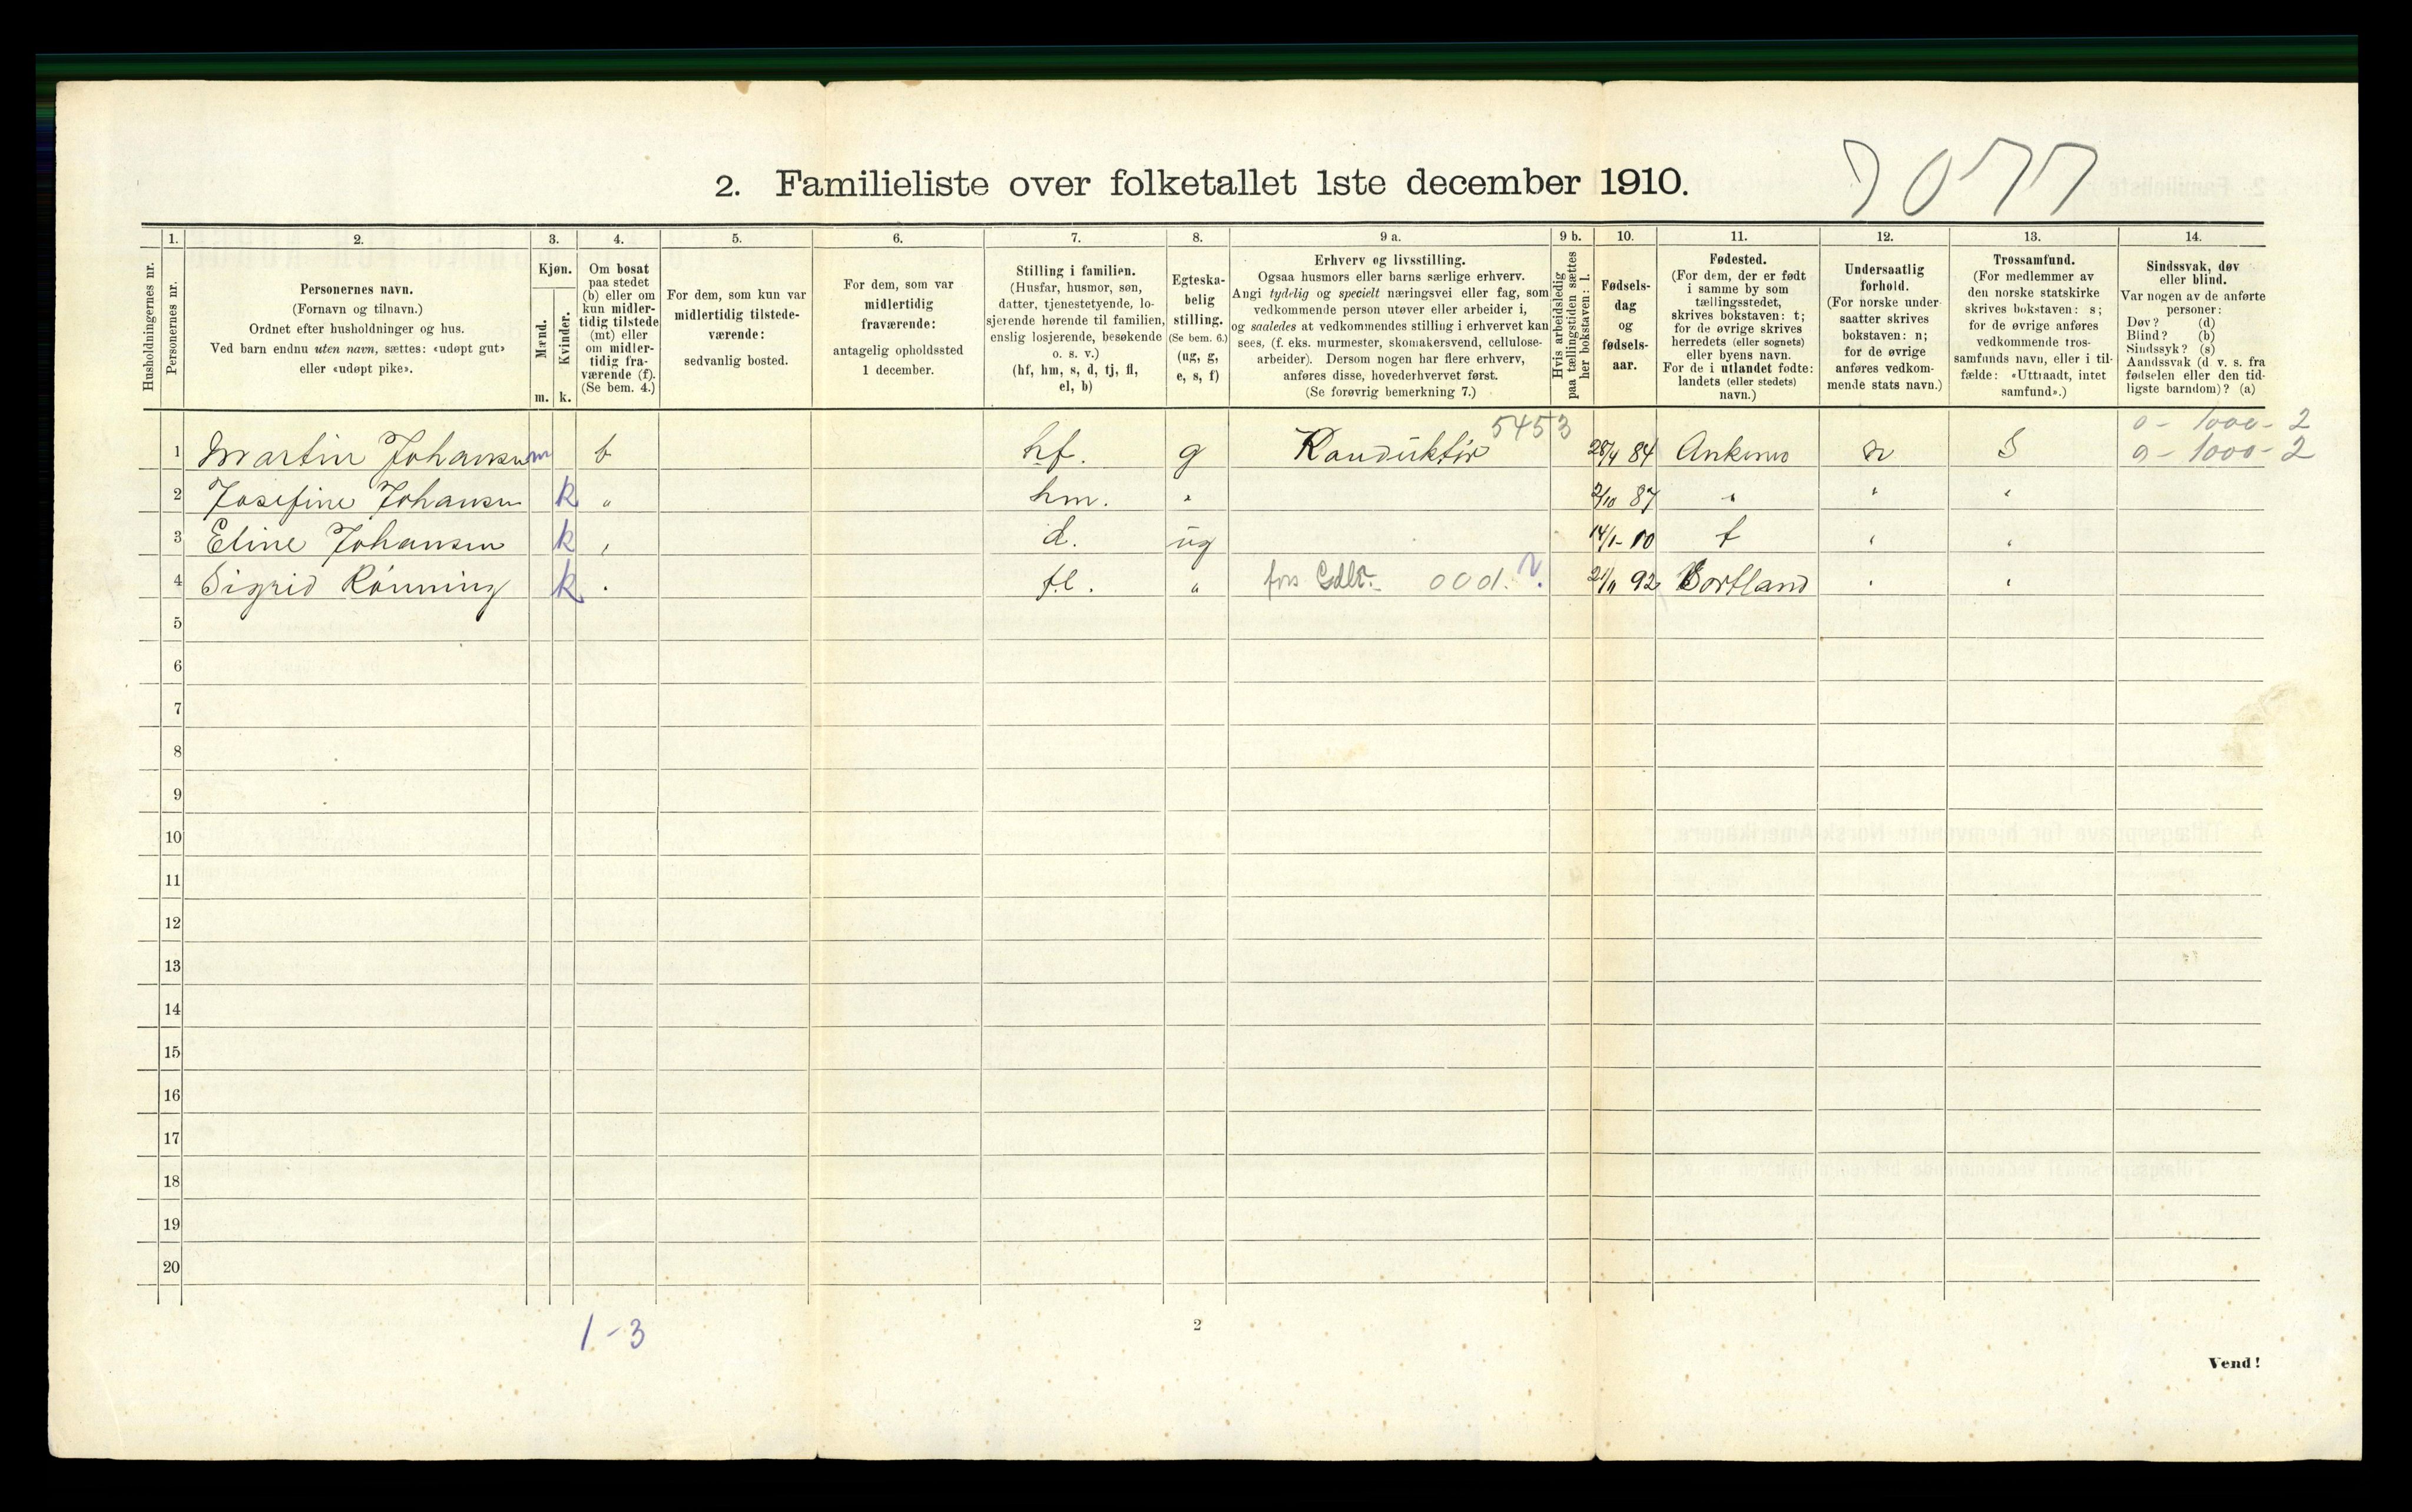 7077
2. Familieliste over folketallet 1ste december 1910.
Husholdningernes nr.
1.
Personernes nr.
2.
Personernes navn.
(Fornavn og tilnavn.)
Ordnet efter husholdninger og hus.
Ved barn endnu uten navn, sættes: «udøpt gut»
eller «udøpt pike».
3.
Kjøn.
Mænd.
Kvinder.
m. k.
4.
Om bosat
paa stedet
(b) eller om
kun midler-
tidig tilstede
(mt) eller
om midler-
tidig fra-
værende (f).
(Se bem. 4.)
5.
For dem, som kun var
midlertidig tilstede-
værende:
sedvanlig bosted.
6.
For dem, som var
midlertidig
fraværende:
antagelig opholdssted
1 december.
7.
Stilling i familien.
(Husfar, husmor, søn,
datter, tjenestetyende, lo-
sjerende hørende til familien,
enslig losjerende, besøkende
o. s. v.)
(hf, hm, s, d, tj, fl,
el, b)
8.
Egteska-
belig
stilling.
(Se bem. 6.)
(ug, g,
e, s, f)
9 a.
Erhverv og livsstilling.
Ogsaa husmors eller barns særlige erhverv.
Angi tydelig og specielt næringsvei eller fag, som
vedkommende person utøver eller arbeider i,
og saaledes at vedkommendes stilling i erhvervet kan
sees, (f. eks. murmester, skomakersvend, cellulose-
arbeider). Dersom nogen har flere erhverv,
anføres disse, hovederhvervet først.
(Se forøvrig bemerkning 7.)
9 b.
Hvis arbeidsledig
paa tællingstiden sættes
her bokstaven: l.
10.
Fødsels-
dag
og
fødsels-
aar.
11.
Fødested.
(For dem, der er født
i samme by som
tællingsstedet,
skrives bokstaven: t;
for de øvrige skrives
herredets (eller sognets)
eller byens navn.
For de i utlandet fødte:
landets (eller stedets)
navn.)
12.
Undersaatlig
forhold.
(For norske under-
saatter skrives
bokstaven: n;
for de øvrige
anføres vedkom-
mende stats navn.)
13.
Trossamfund.
(For medlemmer av
den norske statskirke
skrives bokstaven: s;
for de øvrige anføres
vedkommende tros-
samfunds navn, eller i til-
fælde: «Uttraadt, intet
samfund».)
14.
Sindssvak, døv
eller blind.
Var nogen av de anførte
personer:
Døv? (d)
Blind? (b)
Sindssyk? (s)
Aandssvak (d v. s. fra
fødselen eller den tid-
ligste barndom)? (a)
5453
0 - 1000 - 2
1 Martin Johansen m b hf. g Konduktør 28/4 84 Ankenes n S 0 - 1000 - 2
2 Josefine Johansen k " hm. " 2/10 87 " " "
3 Eline Johansen k " d. ug 14/1- 10 t " "
4 Sigrid Rönning k " fl. " 000 1. 21/11 92 " "
5
6
7
8
9
10
11
12
13
14
15
16
17
18
19
20
1-3
2
Vend!